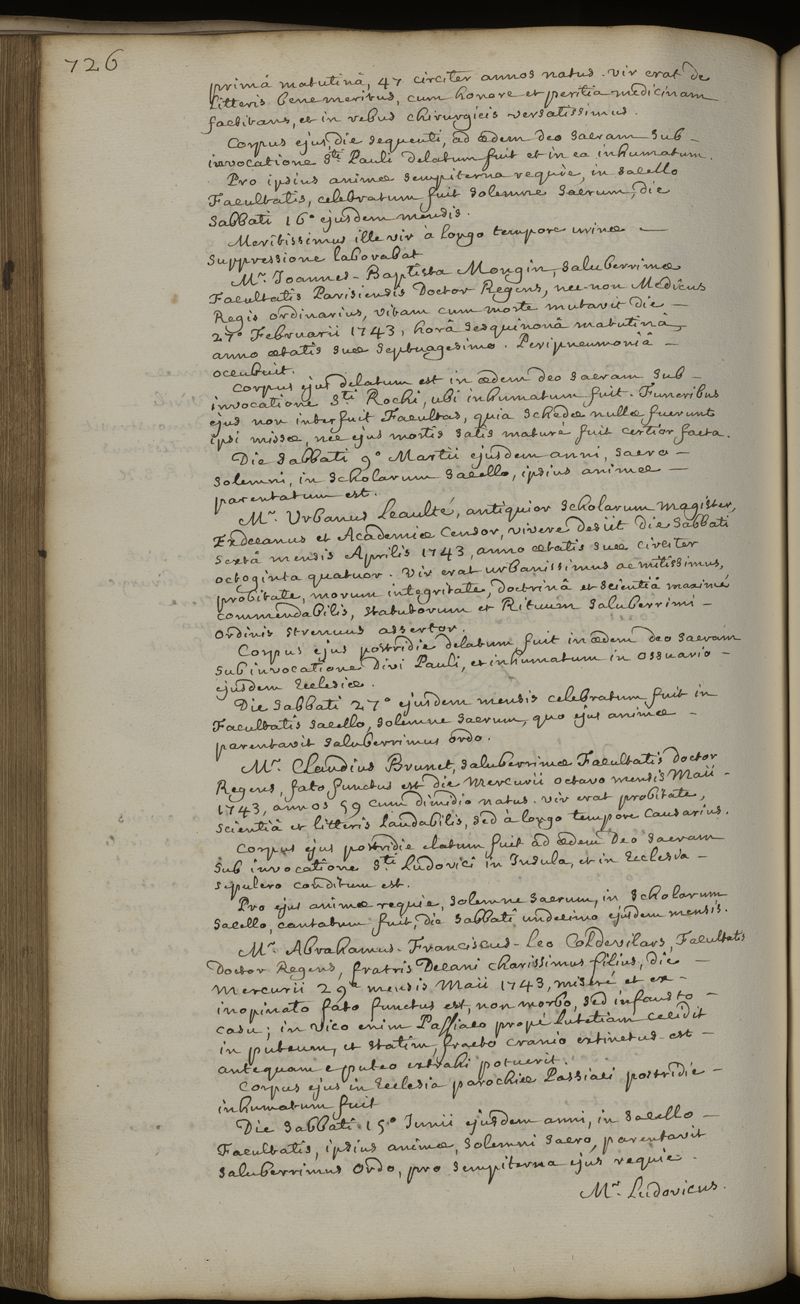 726
primâ matutinâ, 47 circiter annos natus. vir erat de
Litteris bene meritus, cum honore et peritia medicinam
factitans, et in rebus chirurgicis versatissimus.
Corpus ejus, die sequenti, ad ædem deo sacram sub-
invocatione Sti Pauli delatum fuit et in ea inhumatum.
Pro ipsius animæ sempiterna requie, in sacello
Facultatis, celebratum fuit solemne sacrum, die
Sabbati 16° ejusdem mensis.
Meritissimus ille vir à longo tempore urinæ —
Suppressione laborabat
Mr. Joannes-Baptista Mongin, saluberrimæ
Facultatis Parisiensis Doctor Regens, nec-non Medicus
Regis ordinarius, vitam cum morte mutavit die —
27° Februarii 1743, horâ sesquinonâ matutinâ,
anno ætatis suæ septuagesimo. Peripneumoniâ —
occubuit.
Corpus ejus delatum est in ædem deo sacram sub-
invocatione Sti Rochi, ubi inhumatum fuit. Funeribus
ejus non interfuit Facultas, quia schedæ nullæ fuerunt
ipsi missæ, nec ejus mortis satis maturé fuit certior facta.
Die sabbati 9° Martii ejusdem anni, sacro —
solemni, in scholarum sacello, ipsius animæ —
parentatum est.
Mr. Urbanus Leaulté, antiquior scholarum magister,
Exdecanus et Academiæ Censor, vivere desiit die sabbati
sextâ mensis Aprilis 1743, anno ætatis suæ circiter
octoginta quatuor. Vir erat urbanissimus ac mitissimus,
probitate, morum integritate, doctrinâ et scientiâ maximé
commendabilis, statutorum et Rituum saluberrimi —
ordinis strenuus assertor.
Corpus ejus postridie delatum fuit in ædem deo sacram
sub invocatione Divi Pauli, et inhumatum in ossuario —
ejusdem Ecclesiæ.
Die sabbati 27° ejusdem mensis celebratum fuit in
Facultatis sacello, solemne sacrum, quo ejus animæ —
parentavit saluberrimus ordo.
Mr. Claudius Brunet, saluberrimæ Facultatis doctor
Regens, fato functus est die mercurii octavo mensis Maii —
1743, annos 59 cum dimidio natus. vir erat probitate,
scientiâ et litteris laudabilis, sed à longo tempore causarius.
Corpus ejus postridie elatum fuit ad ædem Deo sacram
sub invocatione Sti Ludovici in Insula, et in Ecclesia —
sepulcro conditum est.
Pro ejus animæ requie, solemne sacrum, in scholarum
sacello, cantatum fuit, die sabbati undecimo ejusdem mensis.
Mr. Abrahamus-Franciscus-Leo Coldevilars, Facultatis
Doctor Regens, fratris Decani charissimus filius, die —
mercurii 29a mensis Maii 1743, miseré et ex-
inopinato fato functus est, non morbo, sed infausto —
casu; in vico enim Passiaco propé Lutetiam cecidit
in puteum, et statim, fracto cranio extinctus est —
antequam e puteo extrahi potuerit.
Corpus ejus in Ecclesia parochiæ Passiaci postridie —
inhumatum fuit
Die sabbati 15° Junii ejusdem anni, in sacello —
Facultatis, ipsius animæ, solemni sacro, parentavit
saluberrimus Ordo, pro sempiterna ejus requie.
Mr. Ludovicus.